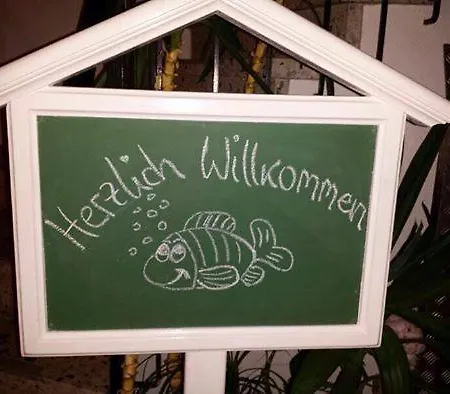 Herzlich Willkommen